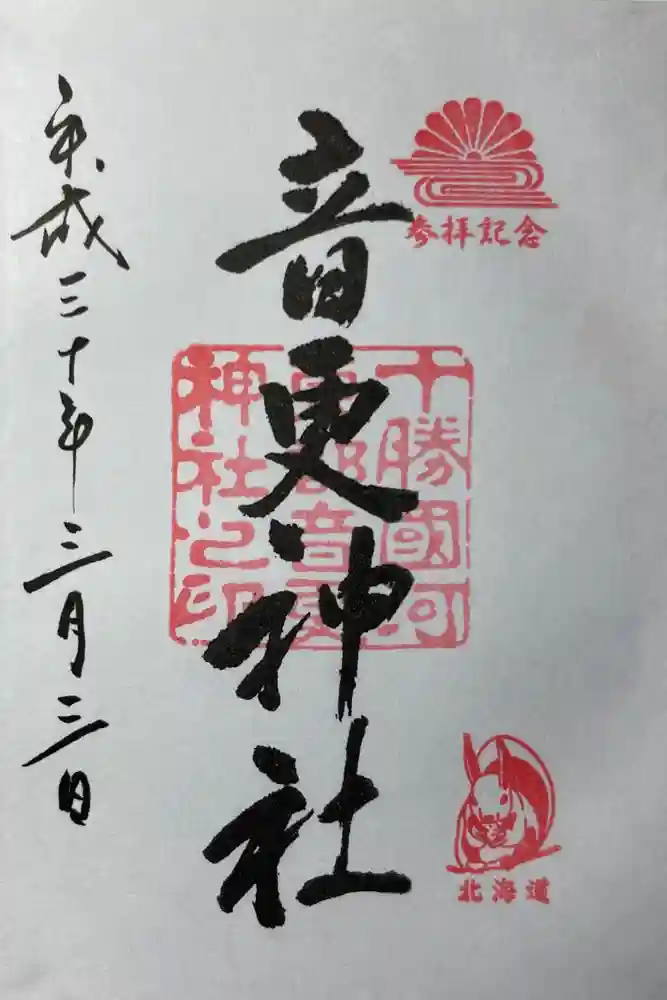 参拝記念
北海道
十勝國河
東郡音更
神社之印
音更神社
平成三十年三月三日